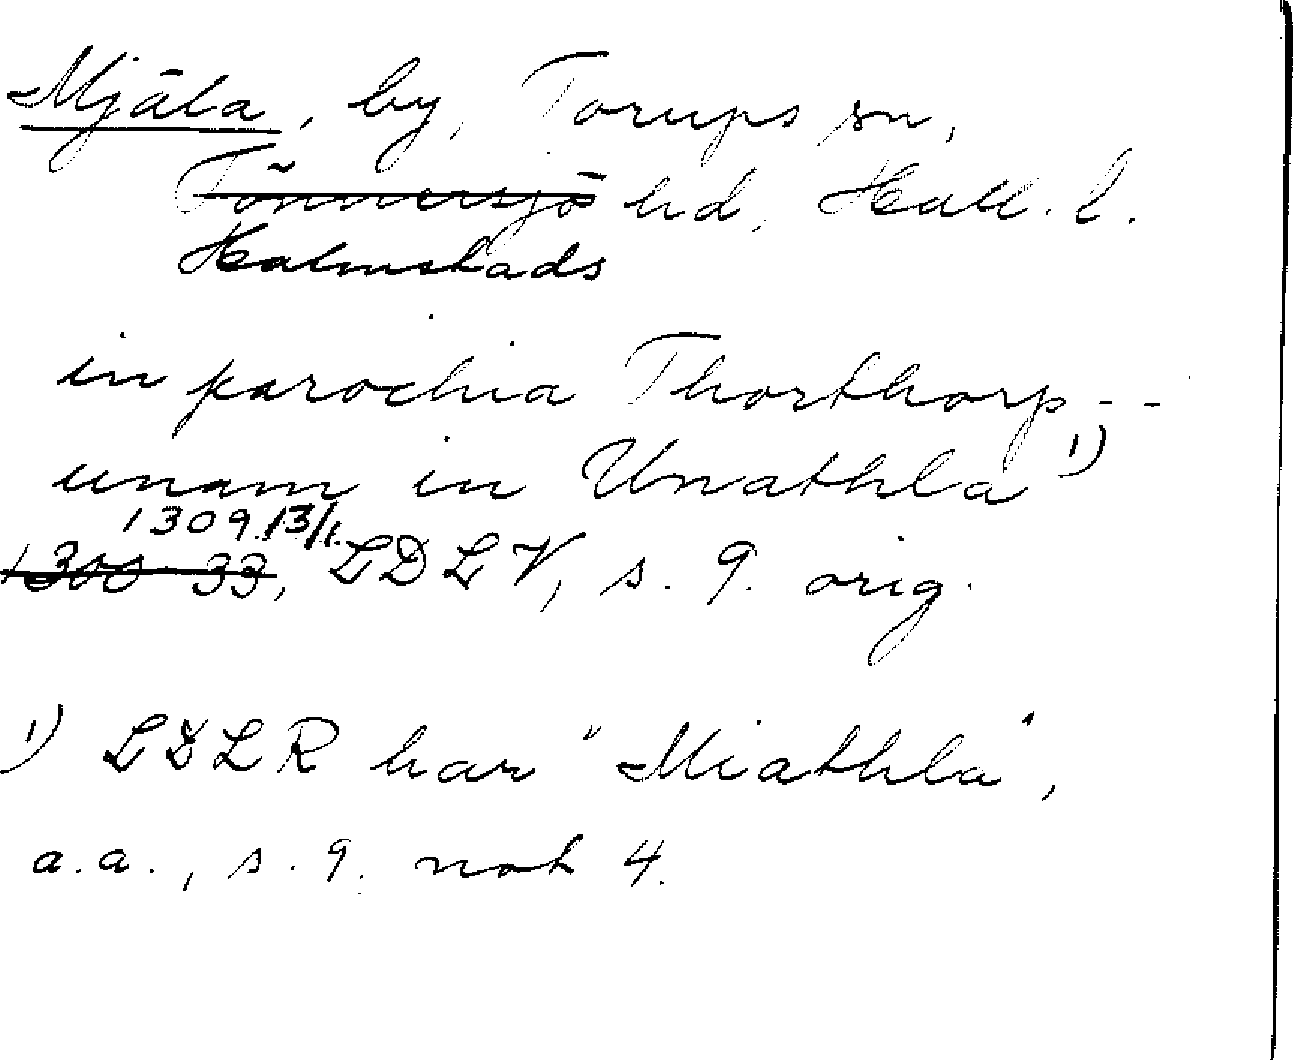 Mjäla, by, Torups sn,
Tönnersjö hd, Hall. l.
Halmstads
in parochia Thorthorp --
unam in Unathla 1)
1309 13/1.
1300-33, LDLV, s. 9. orig.
1) LDLR har "Miathla",
a.a., s. 9. not 4.